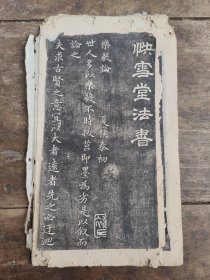 快雪堂法書
樂毅論
夏侯泰初
世人多以樂毅不時拔莒即墨為劣是以叙而
論之
夫求古賢之意宜以大者遠者先之必迂迴